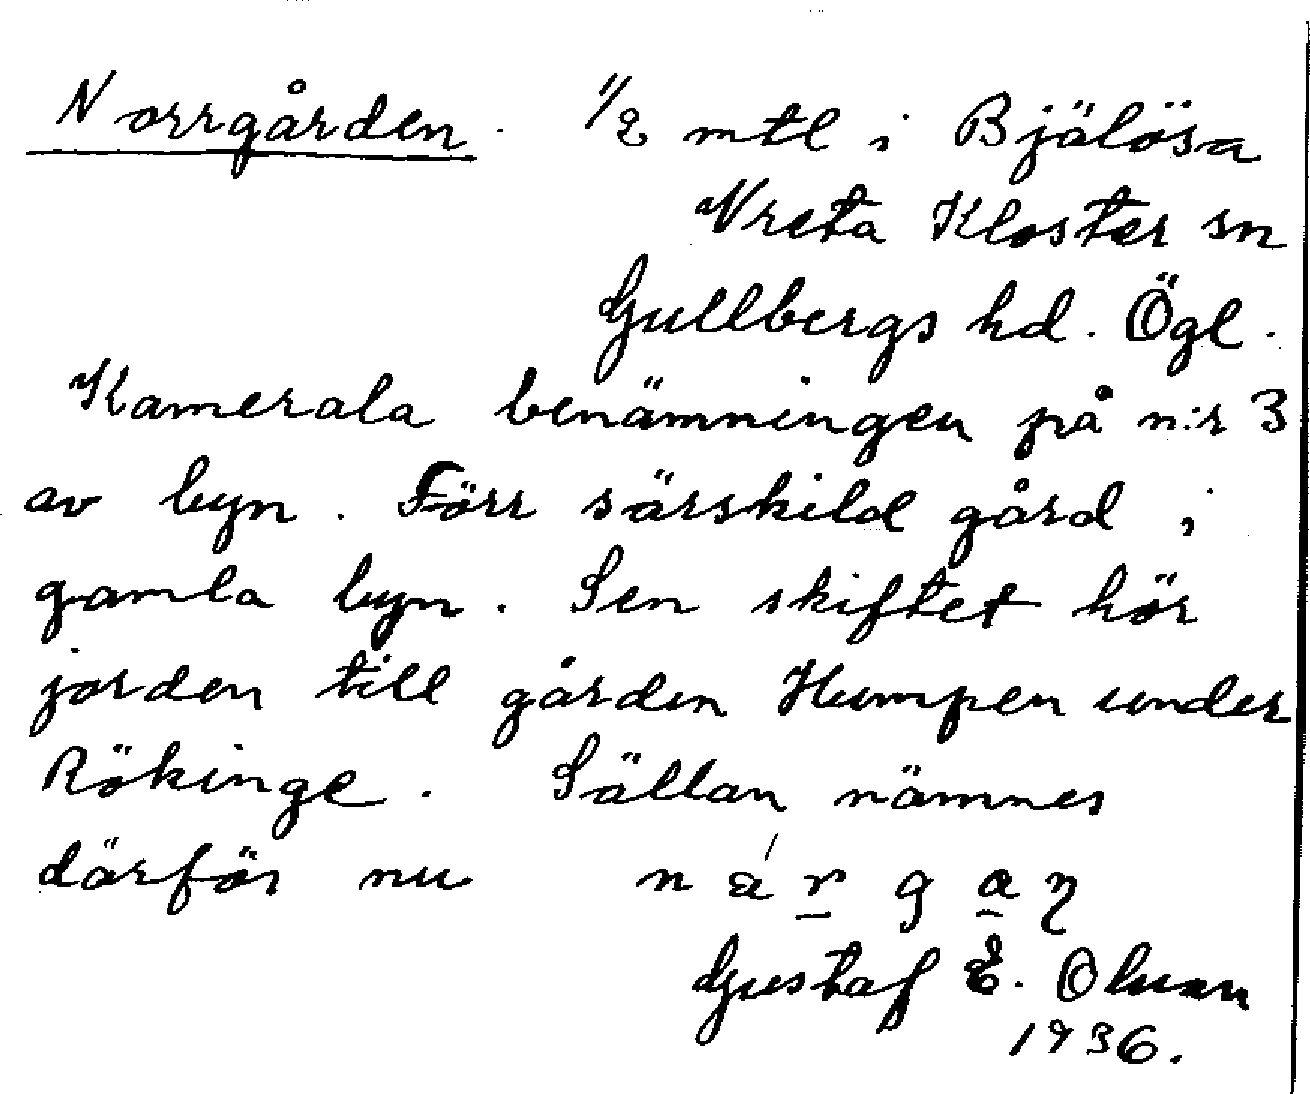 Norrgården. 1/2 mtl i Bjälösa
Vreta Kloster sn
Gullbergs hd. Ögl.
Kamerala benämningen på n:r 3
av byn. Förr särskild gård i
gamla byn. Sen skiftet hör
jorden till gården Humpen under
Rökinge. Sällan nämnes
därför nu
Gustaf E. Olsson
1936.